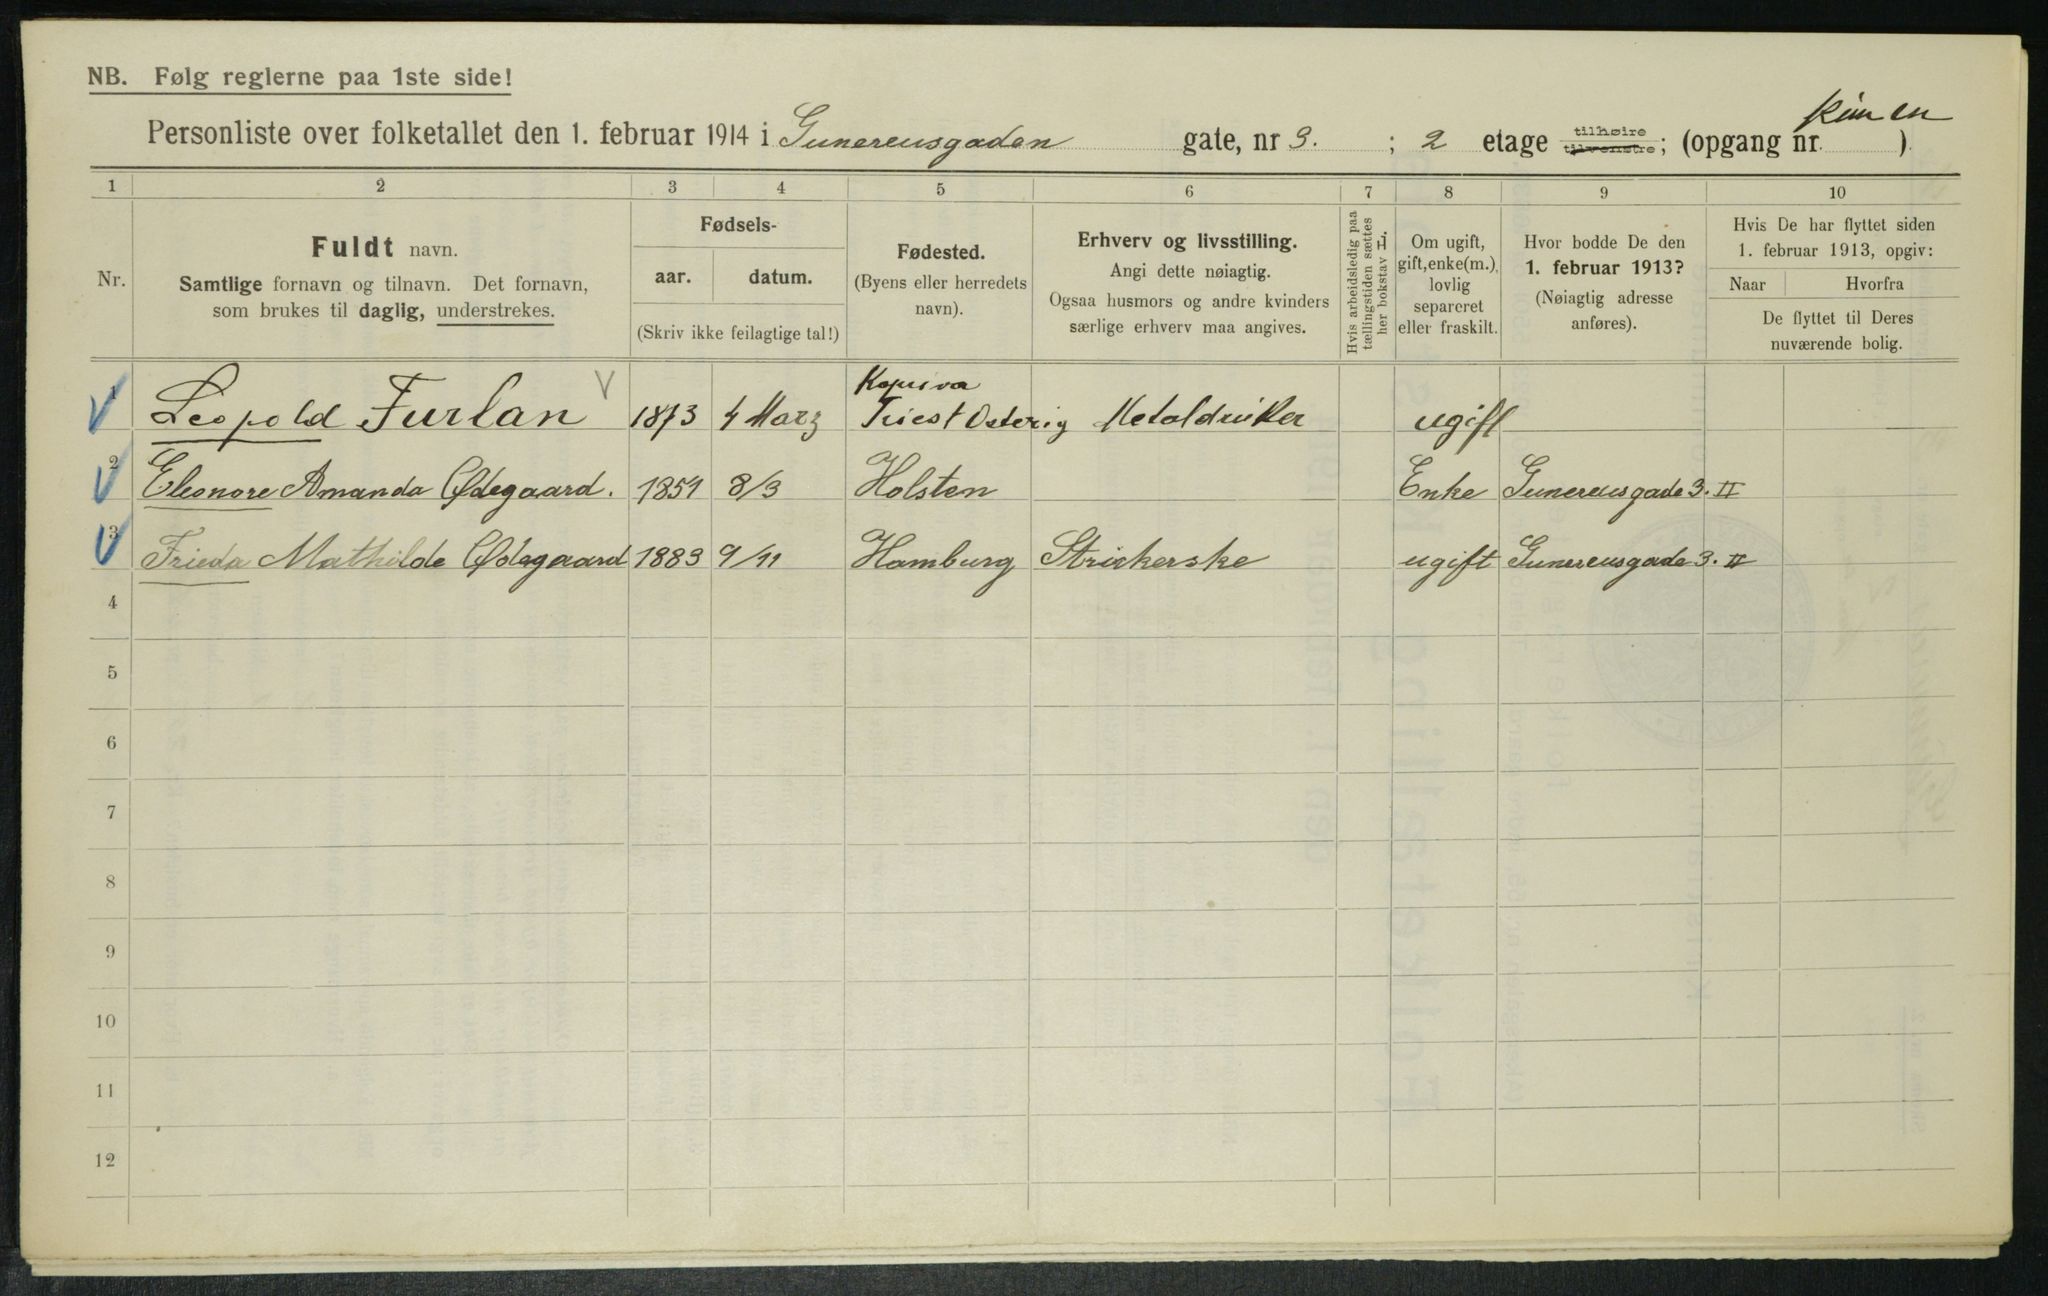 NB. Følg reglerne paa 1ste side!
Personliste over folketallet den 1. februar 1914 i Gunereusgaden gate, nr 3. ; 2 etage tilhøire tilvenstre; (opgang nr. )
1 2 3 4 5 6 7 8 9 10
Nr.
Fuldt navn.
Samtlige fornavn og tilnavn. Det fornavn,
som brukes til daglig, understrekes.
Fødsels-
aar. datum.
(Skriv ikke feilagtige tal!)
Fødested.
(Byens eller herredets
navn).
Erhverv og livsstilling.
Angi dette nøiagtig.
Ogsaa husmors og andre kvinders
særlige erhverv maa angives.
Hvis arbeidsledig paa
tællingstiden sættes
her bokstav L.
Om ugift,
gift, enke(m.),
lovlig
separeret
eller fraskilt.
Hvor bodde De den
1. februar 1913?
(Nøiagtig adresse
anføres).
Hvis De har flyttet siden
1. februar 1913, opgiv:
Naar Hvorfra
De flyttet til Deres
nuværende bolig.
Kopriva
1 Leopold Furlan 1873 4 Marz Triest Osterig Metaldruker ugift
2 Eleonore Amanda Ødegaard. 1851 8/3 Holsten Enke Gunereusgade 3. II
3 Frieda Mathilde Ødegaard 1883 9/11 Hamburg Strickerske ugift Gunereusgade 3. II
4
5
6
7
8
9
10
11
12